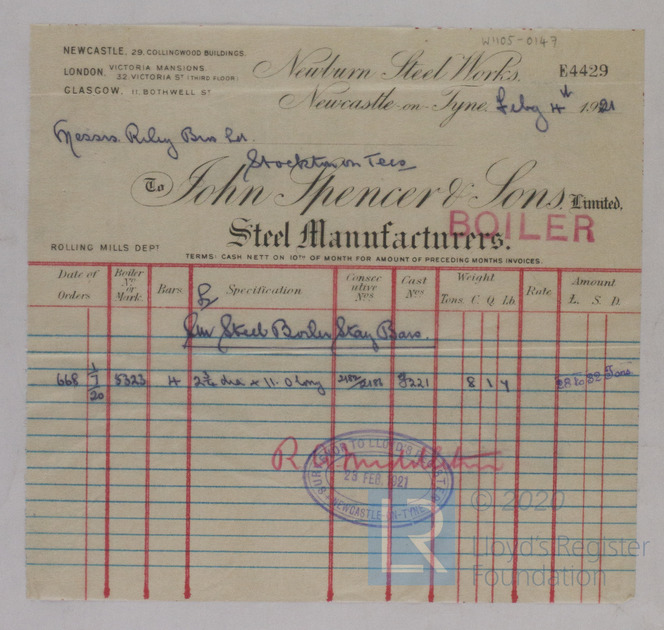 W1105-0147
NEWCASTLE, 29. COLLINGWOOD BUILDINGS.
LONDON, VICTORIA MANSIONS.
32. VICTORIA ST (THIRD FLOOR)
GLASGOW, 11. BOTHWELL ST
Newburn Steel Works.
E4429
Newcastle-on-Tyne. Feby 4th 1921
Messrs. Riley Bros Ld.
Stockton on Tees
To John Spencer & Sons, Limited.
Steel Manufacturers.
BOILER
ROLLING MILLS DEPT
TERMS: CASH NETT ON 10TH OF MONTH FOR AMOUNT OF PRECEDING MONTHS INVOICES.
Date of Orders
Boiler No or Mark.
Bars
Specification
Consecutive Nos
Cast Nos
Weight
Tons. C. Q. Lb.
Rate
Amount
£. S. D.
Steel Boiler Stay Bars.
668 1/7/20 5323 4 dia x 11.0 long 8 1 4 28 to 32 Tons
SURVEYOR TO LLOYD'S REGISTER
23 FEB. 1921
NEWCASTLE-ON-TYNE
LR
© 2020
Lloyd's Register
Foundation